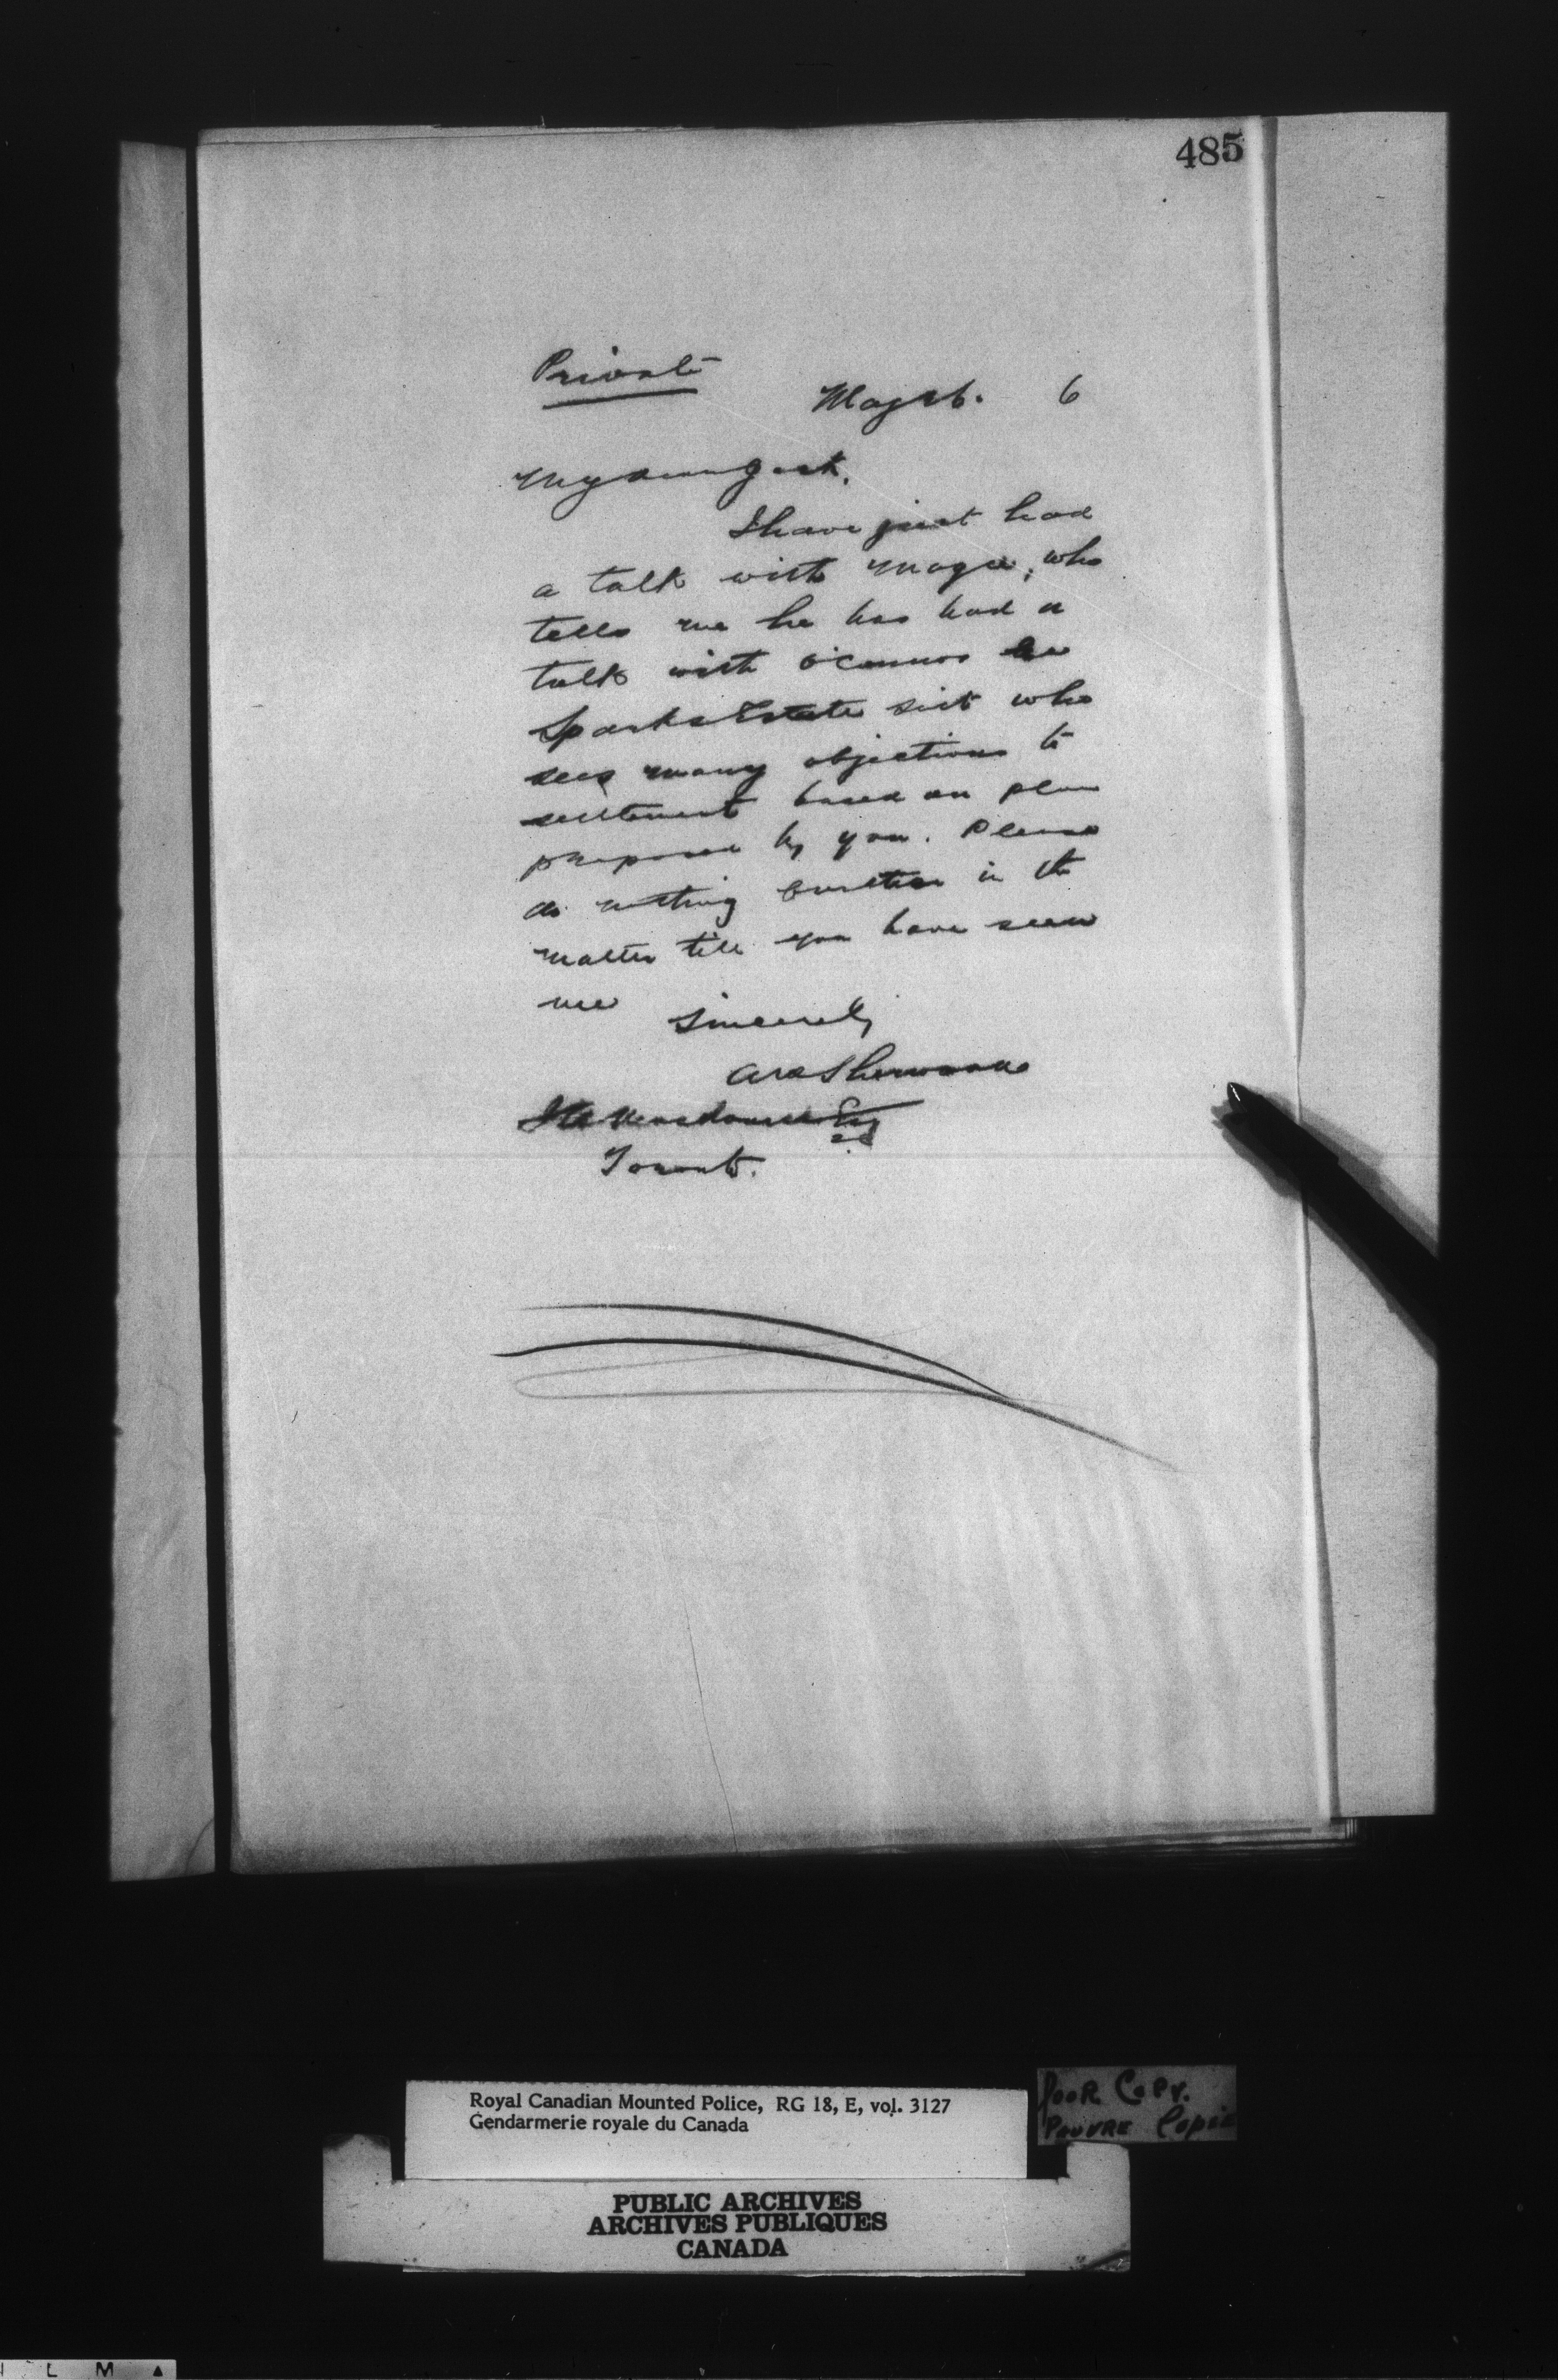 485
Private
May 26. 6
My dear Jack,
I have just had
a talk with Magee, who
tells me he has had a
talk with O'Connor re
Sparks Estate suit who
sees many objections to
settlement based on plan
proposed by you. Please
do nothing further in the
matter till you have seen
me
Sincerely
A P Sherwood
Esq
Toronto.
Royal Canadian Mounted Police, RG 18, E, vol. 3127
Gendarmerie royale du Canada
Poor Copy.
Pauvre Copie
PUBLIC ARCHIVES
ARCHIVES PUBLIQUES
CANADA
L M